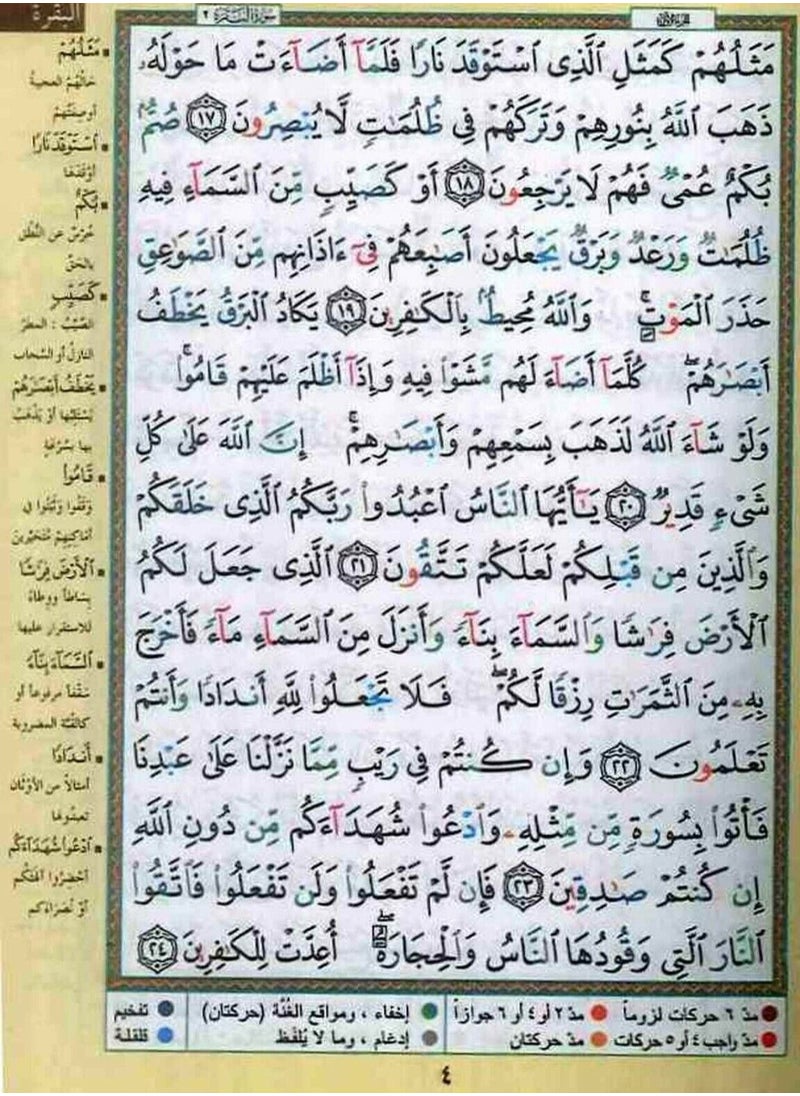 الجزء الأول
سورة البقرة ٢
البقرة
مَثَلُهُمْ كَمَثَلِ ٱلَّذِى ٱسْتَوْقَدَ نَارًا فَلَمَّآ أَضَآءَتْ مَا حَوْلَهُۥ
ذَهَبَ ٱللَّهُ بِنُورِهِمْ وَتَرَكَهُمْ فِى ظُلُمَٰتٍ لَّا يُبْصِرُونَ ١٧ صُمٌّۢ
بُكْمٌ عُمْىٌ فَهُمْ لَا يَرْجِعُونَ ١٨ أَوْ كَصَيِّبٍ مِّنَ ٱلسَّمَآءِ فِيهِ
ظُلُمَٰتٌ وَرَعْدٌ وَبَرْقٌ يَجْعَلُونَ أَصَٰبِعَهُمْ فِىٓ ءَاذَانِهِم مِّنَ ٱلصَّوَٰعِقِ
حَذَرَ ٱلْمَوْتِ ۚ وَٱللَّهُ مُحِيطٌۢ بِٱلْكَٰفِرِينَ ١٩ يَكَادُ ٱلْبَرْقُ يَخْطَفُ
أَبْصَٰرَهُمْ ۖ كُلَّمَآ أَضَآءَ لَهُم مَّشَوْا۟ فِيهِ وَإِذَآ أَظْلَمَ عَلَيْهِمْ قَامُوا۟ ۚ
وَلَوْ شَآءَ ٱللَّهُ لَذَهَبَ بِسَمْعِهِمْ وَأَبْصَٰرِهِمْ ۚ إِنَّ ٱللَّهَ عَلَىٰ كُلِّ
شَىْءٍ قَدِيرٌ ٢٠ يَٰٓأَيُّهَا ٱلنَّاسُ ٱعْبُدُوا۟ رَبَّكُمُ ٱلَّذِى خَلَقَكُمْ
وَٱلَّذِينَ مِن قَبْلِكُمْ لَعَلَّكُمْ تَتَّقُونَ ٢١ ٱلَّذِى جَعَلَ لَكُمُ
ٱلْأَرْضَ فِرَٰشًا وَٱلسَّمَآءَ بِنَآءً وَأَنزَلَ مِنَ ٱلسَّمَآءِ مَآءً فَأَخْرَجَ
بِهِۦ مِنَ ٱلثَّمَرَٰتِ رِزْقًا لَّكُمْ ۖ فَلَا تَجْعَلُوا۟ لِلَّهِ أَندَادًا وَأَنتُمْ
تَعْلَمُونَ ٢٢ وَإِن كُنتُمْ فِى رَيْبٍ مِّمَّا نَزَّلْنَا عَلَىٰ عَبْدِنَا
فَأْتُوا۟ بِسُورَةٍ مِّن مِّثْلِهِۦ وَٱدْعُوا۟ شُهَدَآءَكُم مِّن دُونِ ٱللَّهِ
إِن كُنتُمْ صَٰدِقِينَ ٢٣ فَإِن لَّمْ تَفْعَلُوا۟ وَلَن تَفْعَلُوا۟ فَٱتَّقُوا۟
ٱلنَّارَ ٱلَّتِى وَقُودُهَا ٱلنَّاسُ وَٱلْحِجَارَةُ ۖ أُعِدَّتْ لِلْكَٰفِرِينَ ٢٤
مَثَلُهُمْ
حالُهُم العجيبةُ
أو صِفتُهم
ٱسْتَوْقَدَ نَارًا
أوْقَدَها
بُكْمٌ
خُرْسٌ عن النُّطْقِ
بالحَقّ
كَصَيِّبٍ
الصَّيِّبُ: المطرُ
النازلُ أو السَّحاب
يَخْطَفُ أَبْصَٰرَهُمْ
يَسْتَلِبُها أو يَذْهَبُ
بها بسُرْعَةٍ
قَامُوا۟
وَقَفُوا وثَبَتُوا في
أماكِنِهِمْ مُتَحَيِّرينَ
ٱلْأَرْضَ فِرَٰشًا
بِسَاطاً ووِطَاءً
للاستقرارِ عليها
ٱلسَّمَآءَ بِنَآءً
سَقْفاً مرفوعاً أو
كالقُبَّة المضروبة
أَندَادًا
أمثالاً من الأوْثان
تعبدُونها
ٱدْعُوا۟ شُهَدَآءَكُم
أحْضِرُوا آلهتَكُم
أوْ نُصَرَاءَكم
مدّ ٦ حركات لزوماً
مدّ ٢ أو ٤ أو ٦ جوازاً
إخفاء ، ومواقع الغُنَّة (حركتان)
تفخيم
مدّ واجب ٤ أو ٥ حركات
مدّ حركتان
إدغام ، وما لا يُلفَظ
قلقلة
٤